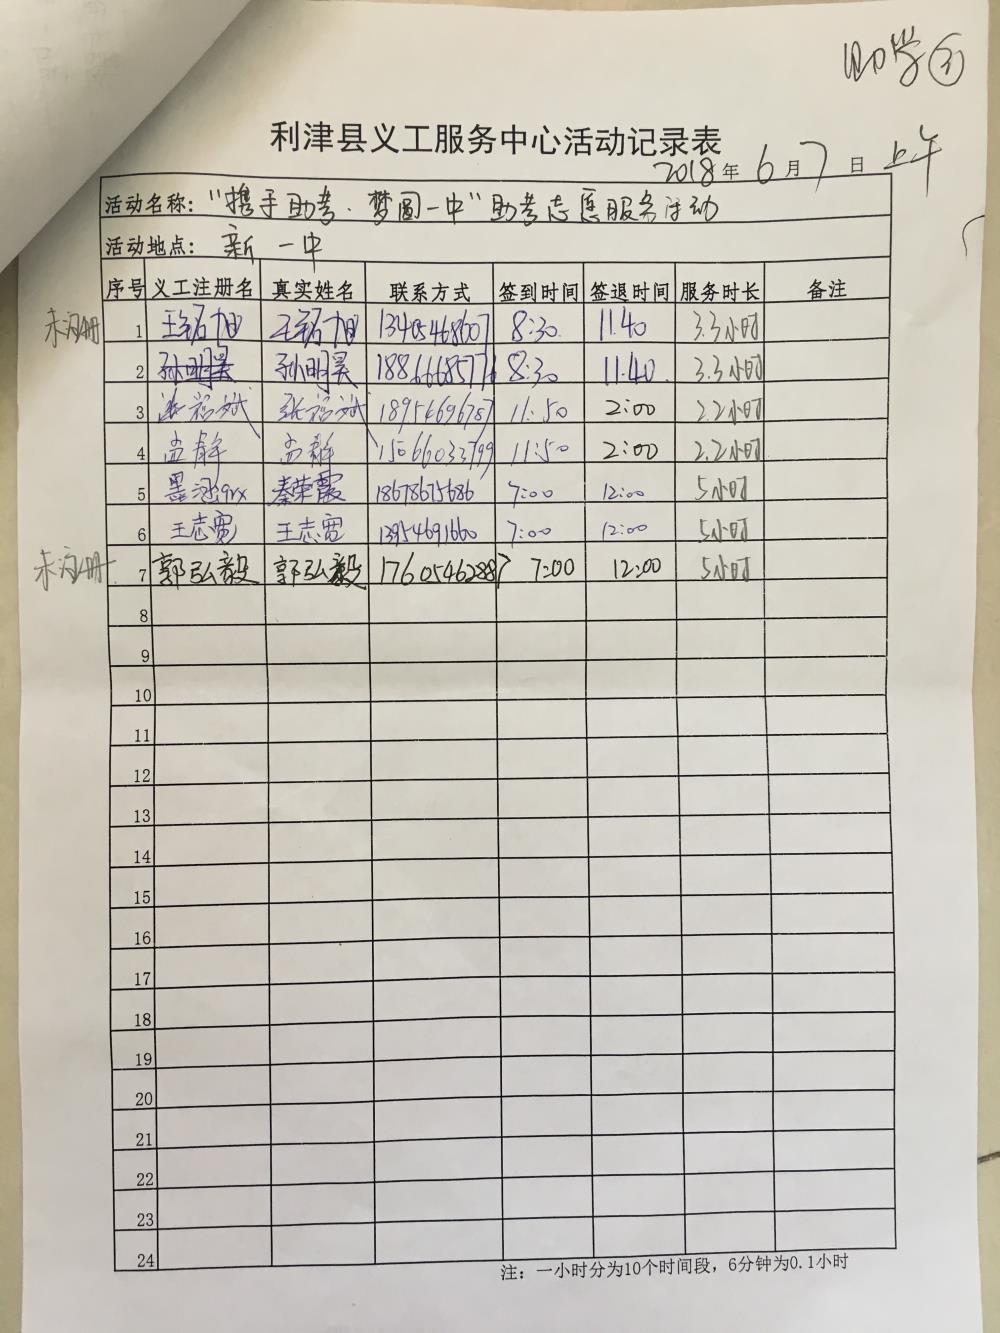 助学③
利津县义工服务中心活动记录表
2018年6月7日 上午
活动名称：“携手助考·梦圆一中”助考志愿服务活动
活动地点： 新一中
序号 义工注册名 真实姓名 联系方式 签到时间 签退时间 服务时长 备注
未注册 1 王铭旭 王铭旭 13405468607 8:30 11.40 3.3小时
2 孙明昊 孙明昊 18866685776 8:30 11.40 3.3小时
3 张裕斌 张裕斌 18954696787 11:50 2:00 2.2小时
4 孟静 孟静 15066033799 11:50 2:00 2.2小时
5 墨涵qrx 秦荣霞 18678675686 7:00 12:00 5小时
6 王志宽 王志宽 13954691660 7:00 12:00 5小时
未注册 7 郭弘毅 郭弘毅 17605462887 7:00 12:00 5小时
8
9
10
11
12
13
14
15
16
17
18
19
20
21
22
23
24
注：一小时分为10个时间段，6分钟为0.1小时